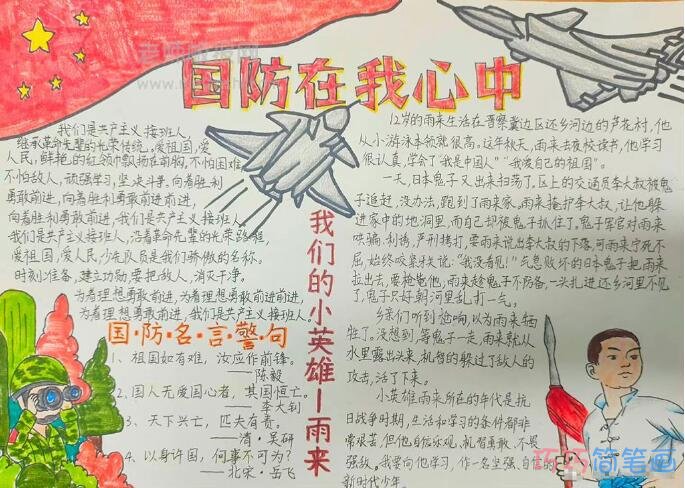 国防在我心中
我们是共产主义接班人,
继承革命先辈的光荣传统,爱祖国,爱
人民,鲜艳的红领巾飘扬在前胸,不怕困难,
不怕敌人,顽强学习,坚决斗争,向着胜利
勇敢前进,向着胜利勇敢前进前进,
向着胜利勇敢前进,我们是共产主义接班人,
我们是共产主义接班人,沿着革命先辈的光荣路程,
爱祖国,爱人民,少先队员是我们骄傲的名称。
时刻准备,建立功勋,要把敌人,消灭干净。
为着理想勇敢前进,为着理想勇敢前进前进,
为着理想勇敢前进,我们是共产主义接班人。
国·防·名·言·警·句
1、祖国如有难,汝应作前锋。
——陈毅
2、国人无爱国心者,其国恒亡。
——李大钊
3、天下兴亡,匹夫有责。
——清·吴研
4、以身许国,何事不可为?
——北宋·岳飞
我们的小英雄—雨来
12岁的雨来生活在晋察冀边区还乡河边的芦花村,他
从小游泳本领就很高。这年秋天,雨来去夜校读书,他学习
很认真,学会了“我是中国人”“我爱自己的祖国”。
一天,日本鬼子又出来扫荡了,区上的交通员李大叔被鬼
子追赶,没办法,跑到了雨来家,雨来掩护李大叔,让他躲
进家中的地洞里,而自己却被鬼子抓住了,鬼子军官对雨来
哄骗、利诱、严刑拷打,要雨来说出李大叔的下落,可雨来宁死不
屈,始终咬紧牙关说:“我没看见!”气急败坏的日本鬼子把雨来
拉出去,要枪毙他,雨来趁鬼子不防备,一头扎进还乡河里不见
了,鬼子只好朝河里乱打一气。
乡亲们听到枪响,以为雨来牺
牲了。没想到,等鬼子一走,雨来就从
水里露出头来,机智的躲过了敌人的
攻击,活了下来。
小英雄雨来所在的年代是抗
日战争时期,生活和学习的条件都非
常艰苦,但他自信乐观,机智勇敢,不畏
强敌。我要向他学习,作一名坚强、自信的
新时代少年。
巧巧简笔画